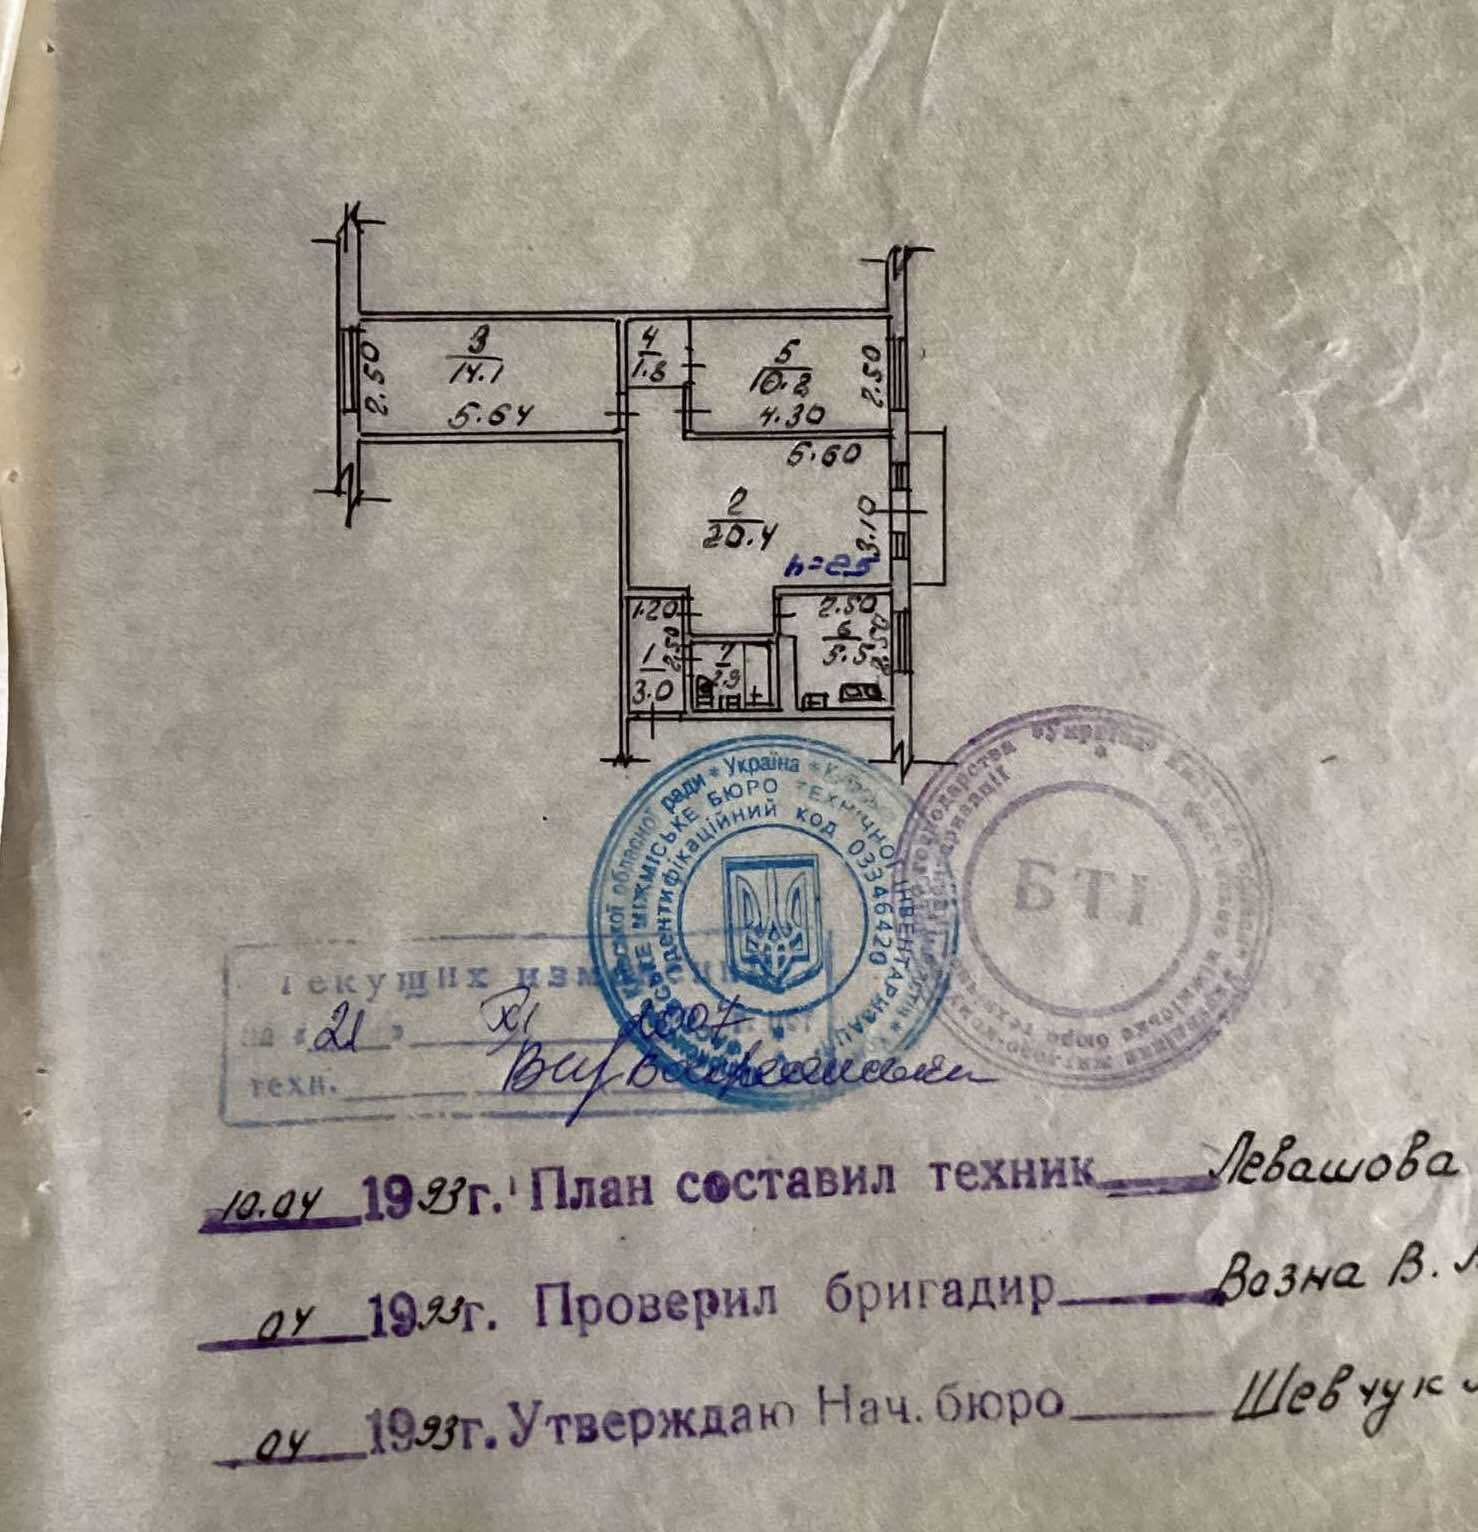 3
14.1
2.50
5.64
4
1.8
5
10.8
2.50
4.30
5.60
2
20.4
3.10
h=25
1.20
2.50
1
3.0
7
2.9
2.50
6
5.5
2.50
ради * Україна *
МІЖМІСЬКЕ БЮРО ТЕХНІЧНОЇ ІНВЕНТАРИЗАЦІЇ
Ідентифікаційний код 03346420
обласної
БТІ
Україна
Текущих изменений
на «21» XI 2007
техн.
10.04 1993г. План составил техник Левашова
04 1993г. Проверил бригадир Возна В.
04 1993г. Утверждаю Нач. бюро Шевчук